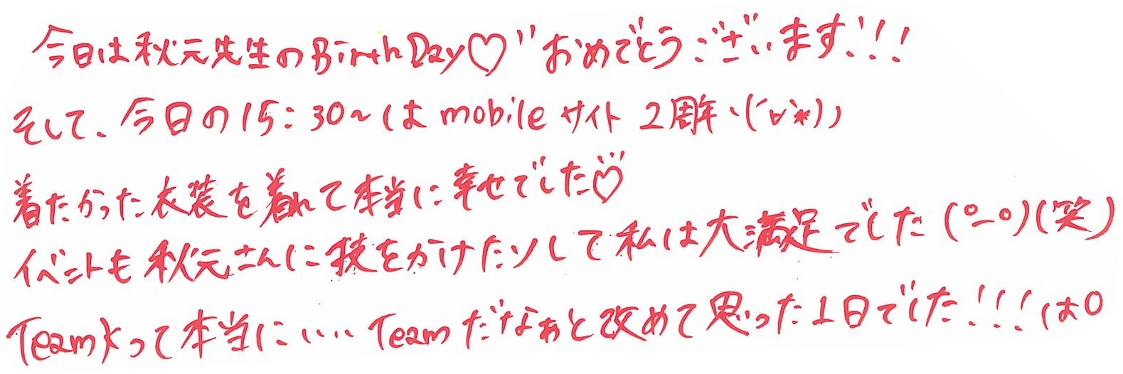 今日は秋元先生のBirthDay♡"おめでとうございます!!!
そして、今日の15:30~はmobileサイト2周年ヽ(´∀`*))ノ
着たかった衣装を着れて本当に幸せでした♡
イベントも秋元さんに技をかけたりして私は大満足でした(°-°)(笑)
TeamKって本当にいい…Teamだなぁと改めて思った1日でした!!!はO